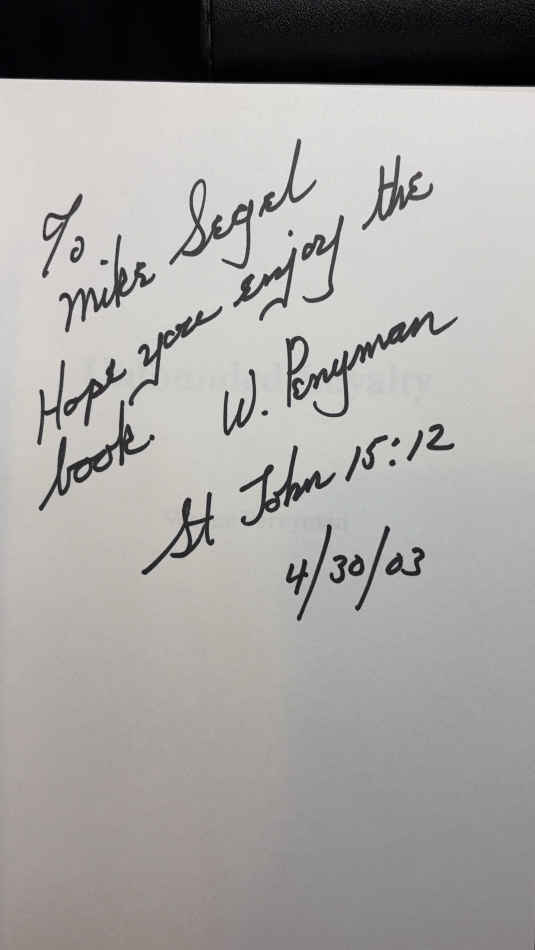 To
Mike Segel
Hope you enjoy the
book. W. Penyman
St John 15:12
4/30/03